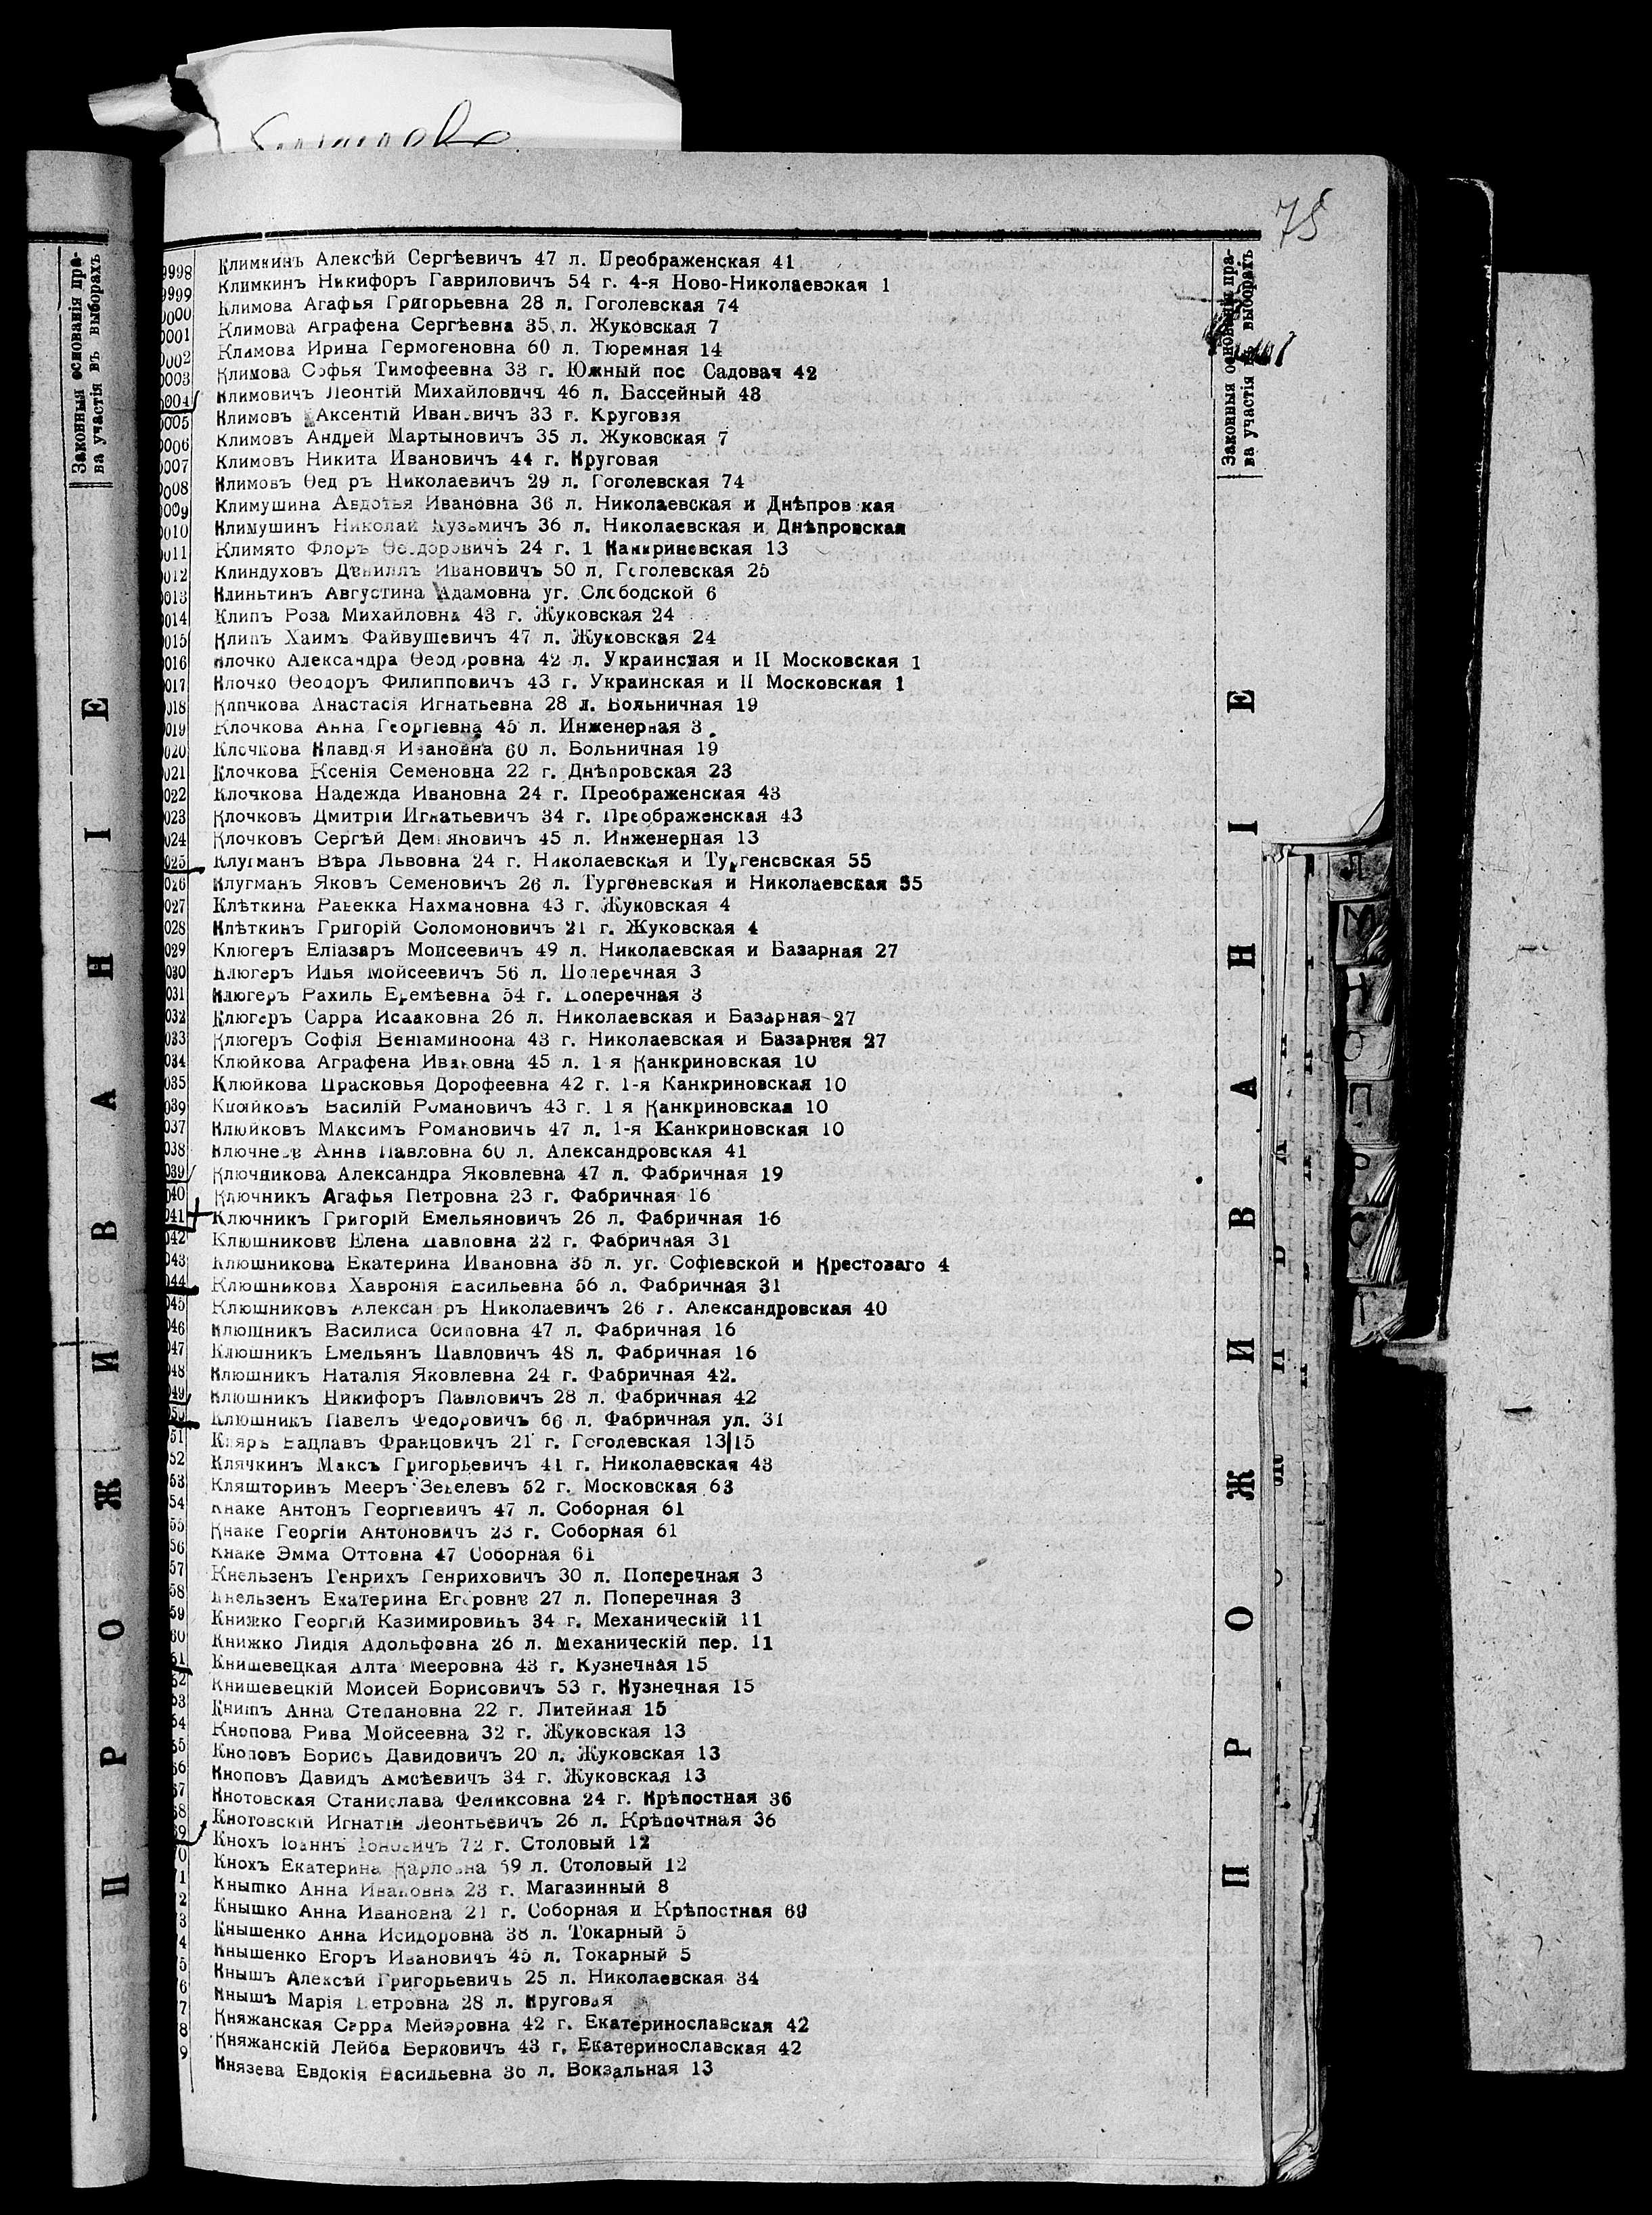 75
Законныя основанія пра-
ва участія въ выборахъ
ПРОЖИВАНІЕ
9998 Климкинъ Алексѣй Сергѣевичъ 47 л. Преображенская 41
9999 Климкинъ Никифоръ Гавриловичъ 54 г. 4-я Ново-Николаевская 1
0000 Климова Агафья Григорьевна 28 л. Гоголевская 74
0001 Климова Аграфена Сергѣевна 35 л. Жуковская 7
0002 Климова Ирина Гермогеновна 60 л. Тюремная 14
0003 Климова Софья Тимофеевна 33 г. Южный пос Садовая 42
0004 Климовичъ Леонтій Михайловичъ 46 л. Бассейный 43
0005 Климовъ Аксентій Иван вичъ 33 г. Круговая
0006 Климовъ Андрей Мартыновичъ 35 л. Жуковская 7
0007 Климовъ Никита Ивановичъ 44 г. Круговая
0008 Климовъ Ѳед ръ Николаевичъ 29 л. Гоголевская 74
0009 Климушина Авдотья Ивановна 36 л. Николаевская и Днѣпров кая
0010 Климушинъ Николай Кузьмичъ 36 л. Николаевская и Днѣпровская
0011 Климято Флоръ Ѳеодоровичъ 24 г. 1 Канкриневская 13
0012 Клиндуховъ Даниилъ Ивановичъ 50 л. Гоголевская 25
0013 Клиньтинъ Августина Адамовна уг. Слободской 6
0014 Клипъ Роза Михайловна 43 г. Жуковская 24
0015 Клипъ Хаимъ Файвушевичъ 47 л. Жуковская 24
0016 Клочко Александра Ѳеодоровна 42 л. Украинская и II Московская 1
0017 Клочко Ѳеодоръ Филипповичъ 43 г. Украинская и II Московская 1
018 Клочкова Анастасія Игнатьевна 28 л. Больничная 19
019 Клочкова Анна Георгіевна 45 л. Инженерная 3
020 Клочкова Клавдія Ивановна 60 л. Больничная 19
021 Клочкова Ксенія Семеновна 22 г. Днѣпровская 23
022 Клочкова Надежда Ивановна 24 г. Преображенская 43
023 Клочковъ Дмитрій Игнатьевичъ 34 г. Преображенская 43
024 Клочковъ Сергѣй Демьяновичъ 45 л. Инженерная 13
025 Клугманъ Вѣра Львовна 24 г. Николаевская и Тургеневская 55
026 Клугманъ Яковъ Семеновичъ 26 л. Тургеневская и Николаевская 55
027 Клѣткина Равекка Нахмановна 43 г. Жуковская 4
028 Клѣткинъ Григорій Соломоновичъ 21 г. Жуковская 4
029 Клюгеръ Еліазаръ Моисеевичъ 49 л. Николаевская и Базарная 27
030 Клюгеръ Илья Мойсеевичъ 56 л. Поперечная 3
031 Клюгеръ Рахиль Еремѣевна 54 г. Поперечная 3
032 Клюгеръ Сарра Исааковна 26 л. Николаевская и Базарная 27
033 Клюгеръ Софія Веніаминоона 43 г. Николаевская и Базарная 27
034 Клюйкова Аграфена Ивановна 45 л. 1 я Канкриновская 10
035 Клюйкова Прасковья Дорофеевна 42 г. 1-я Канкриновская 10
039 Клюйковъ Василій Романовичъ 43 г. 1 я Канкриновская 10
037 Клюйковъ Максимъ Романовичь 47 л. 1-я Канкриновская 10
038 Ключнева Анна Павловна 60 л. Александровская 41
039 Ключникова Александра Яковлевна 47 л. Фабричная 19
040 Ключникъ Агафья Петровна 23 г. Фабричная 16
041 Ключникъ Григорій Емельяновичъ 26 л. Фабричная 16
042 Клюшникова Елена Павловна 22 г. Фабричная 31
043 Клюшникова Екатерина Ивановна 35 л. уг. Софіевской и Крестоваго 4
044 Клюшникова Хавронія Васильевна 56 л. Фабричная 31
045 Клюшниковъ Алексан ръ Николаевичъ 26 г. Александровская 40
046 Клюшникъ Василиса Осиповна 47 л. Фабричная 16
047 Клюшникъ Емельянъ Павловичъ 48 л. Фабричная 16
048 Клюшникъ Наталія Яковлевна 24 г. Фабричная 42.
049 Клюшникъ Никифоръ Павловичъ 28 л. Фабричная 42
050 Клюшникъ Павелъ Федоровичъ 66 л. Фабричная ул. 31
51 Кляръ Вацлавъ Францовичъ 21 г. Гоголевская 13|15
52 Клячкинъ Максъ Григорьевичъ 41 г. Николаевская 43
53 Кляшторинъ Мееръ Зевелевъ 52 г. Московская 63
54 Кнаке Антонъ Георгіевичъ 47 л. Соборная 61
55 Кнаке Георгій Антоновичъ 23 г. Соборная 61
56 Кнаке Эмма Оттовна 47 Соборная 61
57 Кнельзенъ Генрихъ Генриховичъ 30 л. Поперечная 3
58 Кнельзенъ Екатерина Егоровна 27 л. Поперечная 3
59 Книжко Георгій Казимировичъ 34 г. Механическій 11
60 Книжко Лидія Адольфовна 26 л. Механическій пер. 11
61 Книшевецкая Алта Мееровна 43 г. Кузнечная 15
62 Книшевецкій Моисей Борисовичъ 53 г. Кузнечная 15
63 Книшъ Анна Степановна 22 г. Литейная 15
64 Кнопова Рива Мойсеевна 32 г. Жуковская 13
65 Кноповъ Борись Давидовичъ 20 л. Жуковская 13
66 Кноповъ Давидъ Амсѣевичъ 34 г. Жуковская 13
67 Кнотовская Станислава Феликсовна 24 г. Крѣпостная 36
68 Кнотовскій Игнатій Леонтьевичъ 26 л. Крѣпочтная 36
69 Кнохъ Іоаннъ 72 г. Столовый 12
70 Кнохъ Екатерина Карловна 59 л. Столовый 12
1 Кнышко Анна Ивановна 23 г. Магазинный 8
2 Кнышко Анна Ивановна 21 г. Соборная и Крѣпостная 69
3 Кнышенко Анна Исидоровна 38 л. Токарный 5
4 Кнышенко Егоръ Ивановичъ 45 л. Токарный 5
5 Кнышъ Алексѣй Григорьевичь 25 л. Николаевская 34
6 Кнышъ Марія Петровна 28 л. Круговая
7 Княжанская Сарра Мейэровна 42 г. Екатеринославская 42
8 Княжанскій Лейба Берковичъ 43 г. Екатеринославская 42
9 Князева Евдокія Васильевна 36 л. Вокзальная 13
Законныя основанія пра-
ва участія въ выборахъ
ПРОЖИВАНІЕ
Л
М
Н
О
П
Р
С
Т